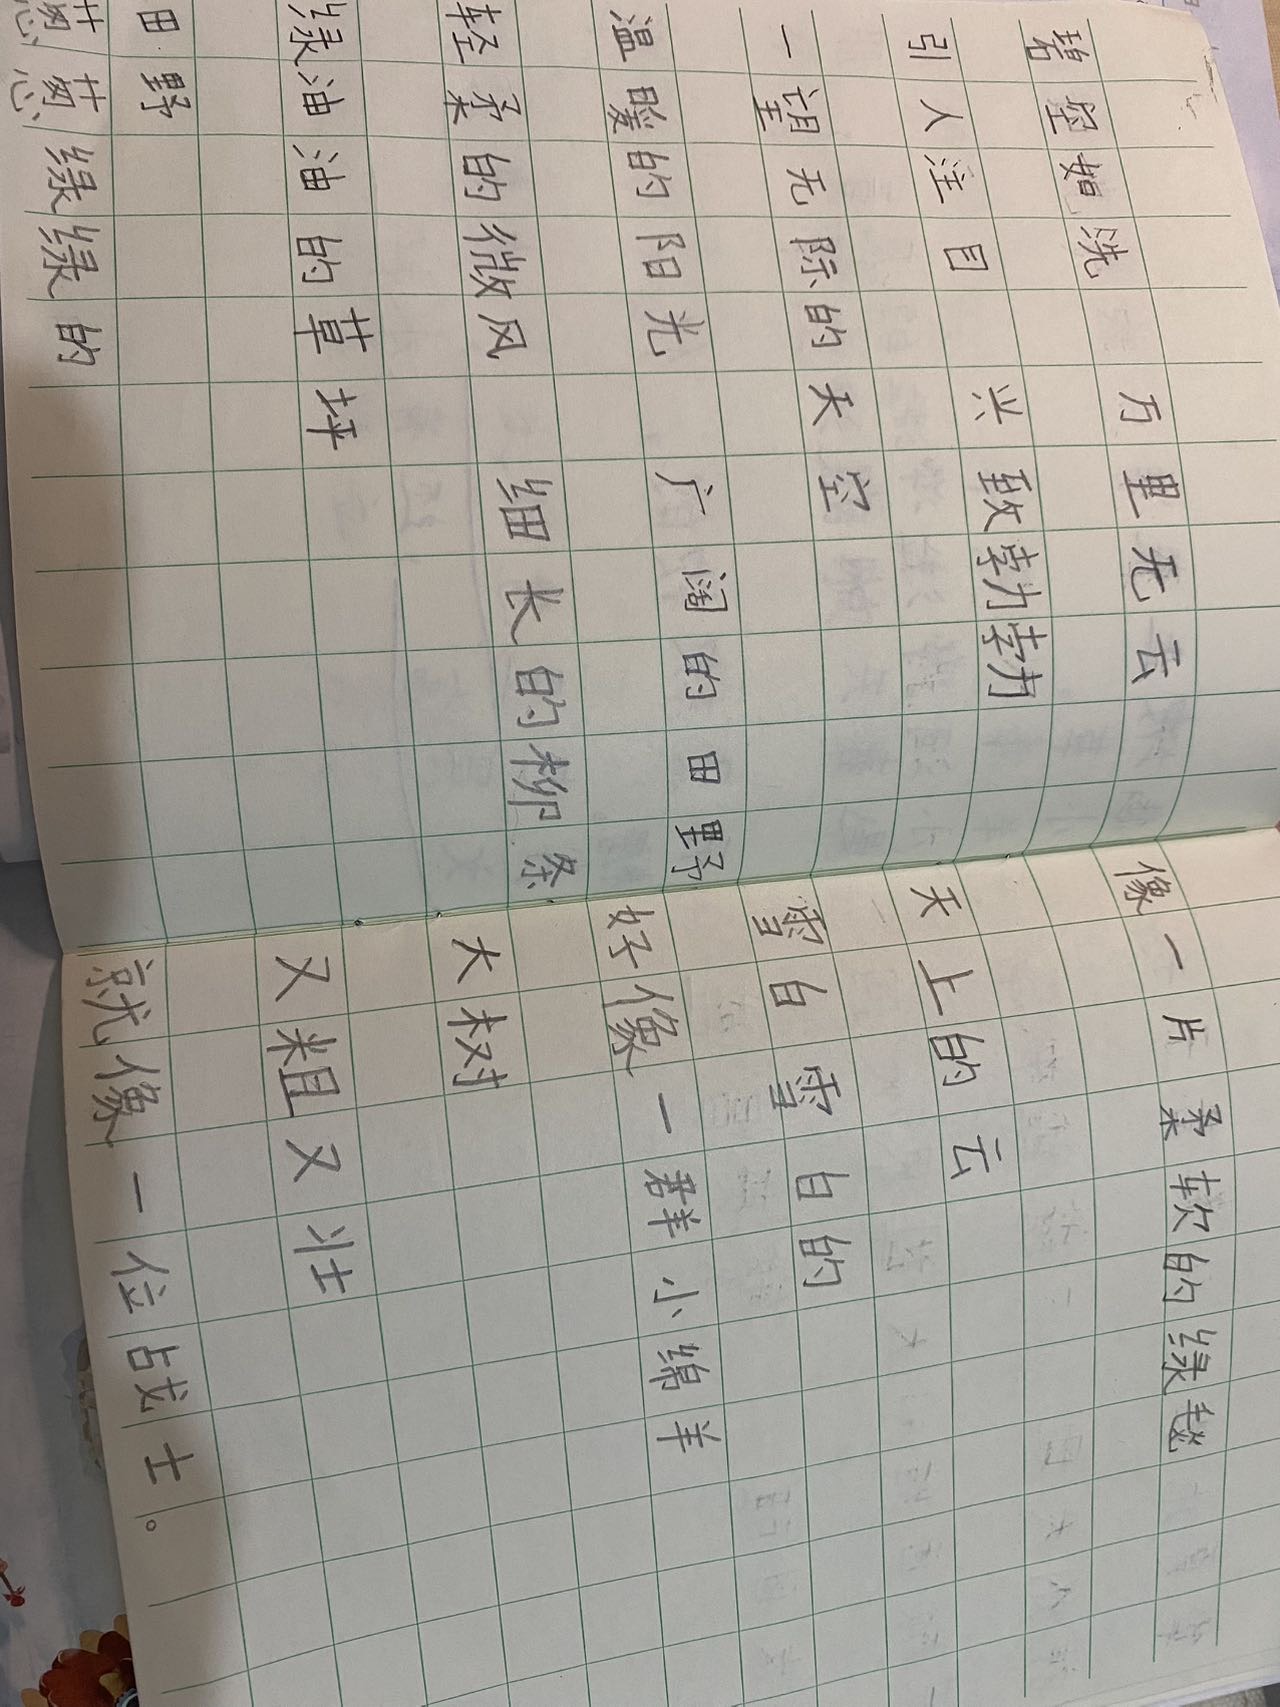 碧空如洗 万里无云
引人注目 兴致勃勃
一望无际的天空
温暖的阳光 广阔的田野
轻柔的微风 细长的柳条
绿油油的草坪
田野
葱葱绿绿的
像一片柔软的绿毯
天上的云
雪白雪白的
好像一群小绵羊
大树
又粗又壮
就像一位战士。